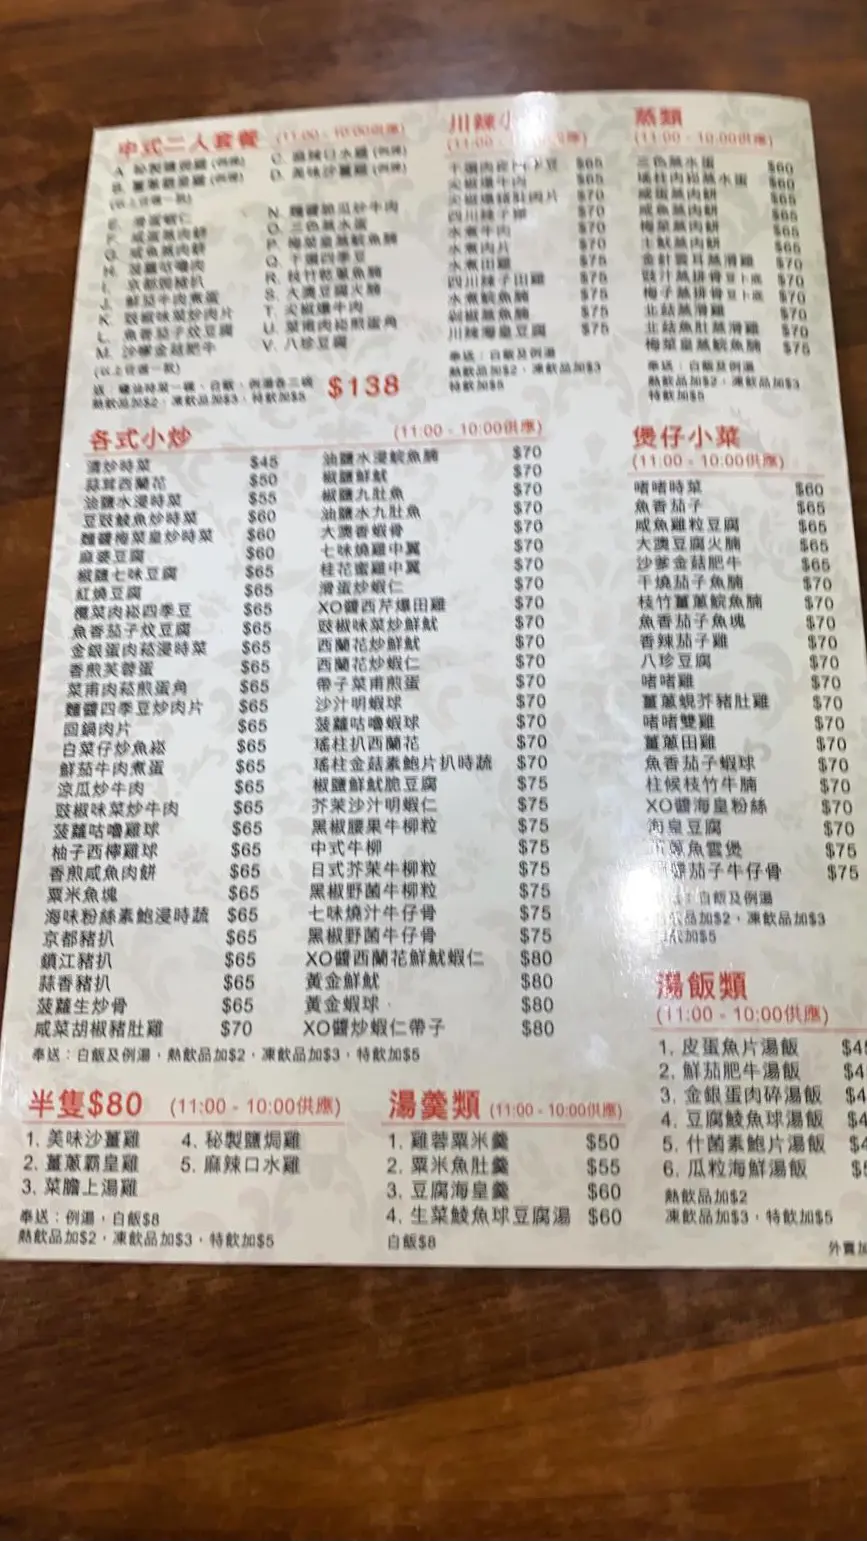 中式二人套餐 (11:00 - 10:00供應)
A. 秘製鹽焗雞 C. 麻辣口水雞
B. 薑蔥霸皇雞 D. 美味沙薑雞
(以上任選一款)
E. 滑蛋蝦仁
F. 咸蛋蒸肉餅
G. 咸魚蒸肉餅
H. 菠蘿咕嚕肉
I. 京都焗豬扒
J. 鮮茄牛肉煮蛋
K. 豉椒味菜炒肉片
L. 魚香茄子炆豆腐
M. 沙嗲金菇肥牛
(以上任選一款)
N. 麵醬脆瓜炒牛肉
O. 三色蒸水蛋
P. 梅菜皇蒸鯇魚腩
Q. 干煸四季豆
R. 枝竹乾蔥魚腩
S. 大澳豆腐火腩
T. 尖椒爆牛肉
U. 菜甫肉崧煎蛋角
V. 八珍豆腐
送：鹽油時菜一碟、白飯、例湯各二碗
熱飲品加$2，凍飲品加$3，特飲加$5
$138
川辣小
(11:00 - 供應)
$65
尖椒爆牛肉 $65
尖椒爆豬肚肉片 $70
四川辣子雞 $70
水煮牛肉 $70
水煮肉片 $70
水煮田雞 $75
四川辣子田雞 $75
水煮鯇魚腩 $75
剁椒蒸魚腩 $75
川辣海皇豆腐 $75
奉送：白飯及例湯
熱飲品加$2，凍飲品加$3
特飲加$5
蒸類
(11:00 - 10:00供應)
三色蒸水蛋 $60
瑤柱肉崧蒸水蛋 $60
咸蛋蒸肉餅 $65
咸魚蒸肉餅 $65
梅菜蒸肉餅 $65
土魷蒸肉餅 $65
金針雲耳蒸滑雞 $70
豉汁蒸排骨豆卜底 $70
梅子蒸排骨豆卜底 $70
北菇蒸雞 $70
北菇魚肚蒸滑雞 $70
梅菜皇蒸鯇魚腩 $75
奉送：白飯及例湯
熱飲品加$2，凍飲品加$3
特飲加$5
各式小炒 (11:00 - 10:00供應)
清炒時菜 $45
蒜茸西蘭花 $50
油鹽水浸時菜 $55
豆豉鯪魚炒時菜 $60
麵醬梅菜皇炒時菜 $60
麻婆豆腐 $60
椒鹽七味豆腐 $65
紅燒豆腐 $65
欖菜肉崧四季豆 $65
魚香茄子炆豆腐 $65
金銀蛋肉菘浸時菜 $65
香煎芙蓉蛋 $65
菜甫肉菘煎蛋角 $65
麵醬四季豆炒肉片 $65
回鍋肉片 $65
白菜仔炒魚崧 $65
鮮茄牛肉煮蛋 $65
涼瓜炒牛肉 $65
豉椒味菜炒牛肉 $65
菠蘿咕嚕雞球 $65
柚子西檸雞球 $65
香煎咸魚肉餅 $65
粟米魚塊 $65
海味粉絲素鮑浸時蔬 $65
京都豬扒 $65
鎮江豬扒 $65
蒜香豬扒 $65
菠蘿生炒骨 $65
咸菜胡椒豬肚雞 $70
油鹽水浸鯇魚腩 $70
椒鹽鮮魷 $70
椒鹽九肚魚 $70
油鹽水九肚魚 $70
大澳香蝦骨 $70
七味燒雞中翼 $70
桂花蜜雞中翼 $70
滑蛋炒蝦仁 $70
XO醬西芹爆田雞 $70
豉椒味菜炒鮮魷 $70
西蘭花炒鮮魷 $70
西蘭花炒蝦仁 $70
帶子菜甫煎蛋 $70
沙汁明蝦球 $70
菠蘿咕嚕蝦球 $70
瑤柱扒西蘭花 $70
瑤柱金菇素鮑片扒時蔬 $70
椒鹽鮮魷脆豆腐 $75
芥茉沙汁明蝦仁 $75
黑椒腰果牛柳粒 $75
中式牛柳 $75
日式芥茉牛柳粒 $75
黑椒野菌牛柳粒 $75
七味燒汁牛仔骨 $75
黑椒野菌牛仔骨 $75
XO醬西蘭花鮮魷蝦仁 $80
黃金鮮魷 $80
黃金蝦球 $80
XO醬炒蝦仁帶子 $80
奉送：白飯及例湯，熱飲品加$2，凍飲品加$3，特飲加$5
煲仔小菜
(11:00 - 10:00供應)
啫啫時菜 $60
魚香茄子 $65
咸魚雞粒豆腐 $65
大澳豆腐火腩 $65
沙爹金菇肥牛 $65
干燒茄子魚腩 $70
枝竹薑蔥鯇魚腩 $70
魚香茄子魚塊 $70
香辣茄子雞 $70
八珍豆腐 $70
啫啫雞 $70
薑蔥蜆芥豬肚雞 $70
啫啫雙雞 $70
薑蔥田雞 $70
魚香茄子蝦球 $70
柱候枝竹牛腩 $70
XO醬海皇粉絲 $70
海皇豆腐 $70
蔥魚雲煲 $75
茄子牛仔骨 $75
白飯及例湯
飲品加$2，凍飲品加$3
加$5
半隻$80 (11:00 - 10:00供應)
1. 美味沙薑雞 4. 秘製鹽焗雞
2. 薑蔥霸皇雞 5. 麻辣口水雞
3. 菜膽上湯雞
奉送：例湯，白飯$8
熱飲品加$2，凍飲品加$3，特飲加$5
湯羹類 (11:00 - 10:00供應)
1. 雞蓉粟米羹 $50
2. 粟米魚肚羹 $55
3. 豆腐海皇羹 $60
4. 生菜鯪魚球豆腐湯 $60
白飯$8
湯飯類
(11:00 - 10:00供應)
1. 皮蛋魚片湯飯 $4
2. 鮮茄肥牛湯飯 $4
3. 金銀蛋肉碎湯飯 $4
4. 豆腐鯪魚球湯飯 $4
5. 什菌素鮑片湯飯 $4
6. 瓜粒海鮮湯飯
熱飲品加$2
凍飲品加$3，特飲加$5
外賣加